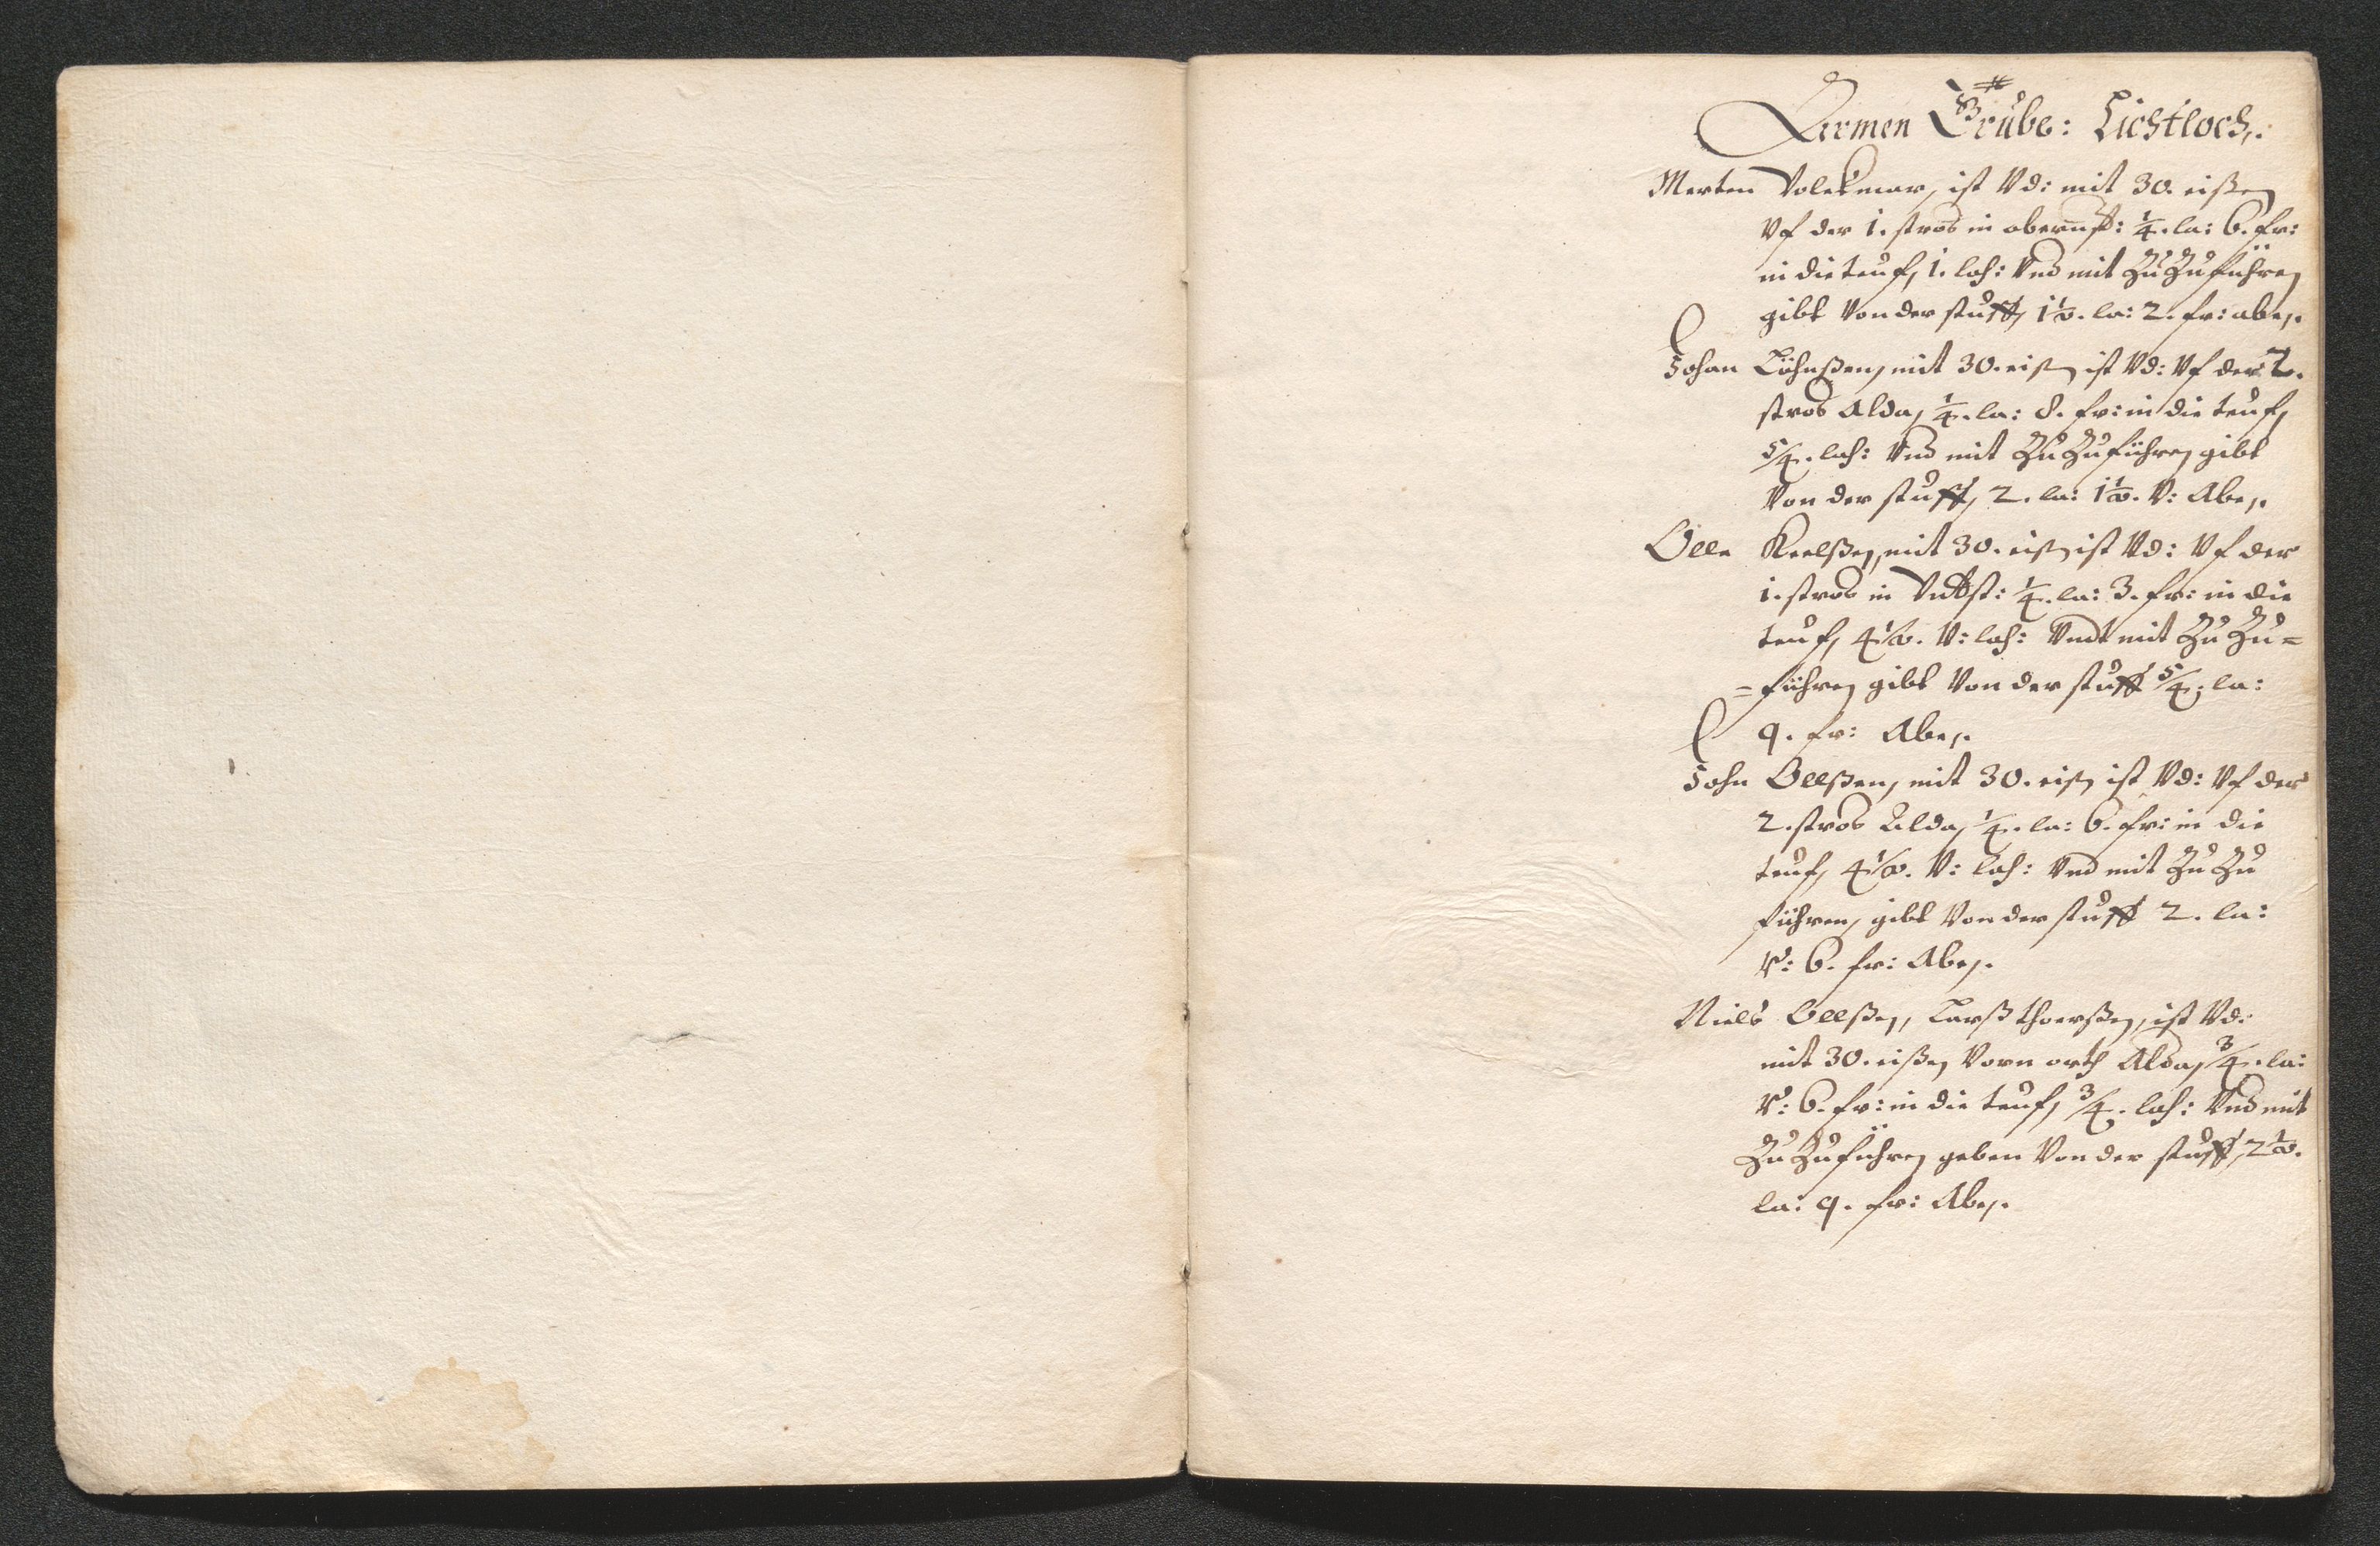 Armen Grube: Lichtloch,.
Merten Volckmar, ist Vd: mit 30. eißen
Vf der 1. stros in obernst: 1/4. la: 6. fr:
in die teuf, 1. lah: Vnd mit Zu Zuführen
gibt Von der stuff, 1 1/2. la: 2. fr: abe,.
Johan Löhnßen, mit 30. eißen ist Vd: Vf der 2.
stros Alda, 1/4. la: 8. fr: in die teuf,
5/4. lah: Vnd mit Zu Zuführen gibt
Von der stuff, 2. la: 1 1/2. V: Abe,.
Olle Keelßen, mit 30. eißen ist Vd: Vf der
1. stros in st: 1/4. la: 3. fr: in die
teuf, 4 1/2. V: lah: Vndt mit Zu Zu=
=führen gibt Von der stuff 5/4. la:
9. fr: Abe,.
John Ollßen, mit 30. eißen ist Vd: Vf der
2. stros Alda, 1/4. la: 6. fr: in die
teuf, 4 1/2. V: lah: Vnd mit Zu Zu
führen, gibt Von der stuff 2. la:
V: 6. fr: Abe,.
Niels Ollßen, Larß thorßen, ist Vd:
mit 30. eißen Vorn orth Alda, 3/4. la:
V: 6. fr: in die teuf, 3/4. lah: Vnd mit
Zu Zuführen geben Von der stuff, 2 1/2.
la: 9. fr: Abe,.